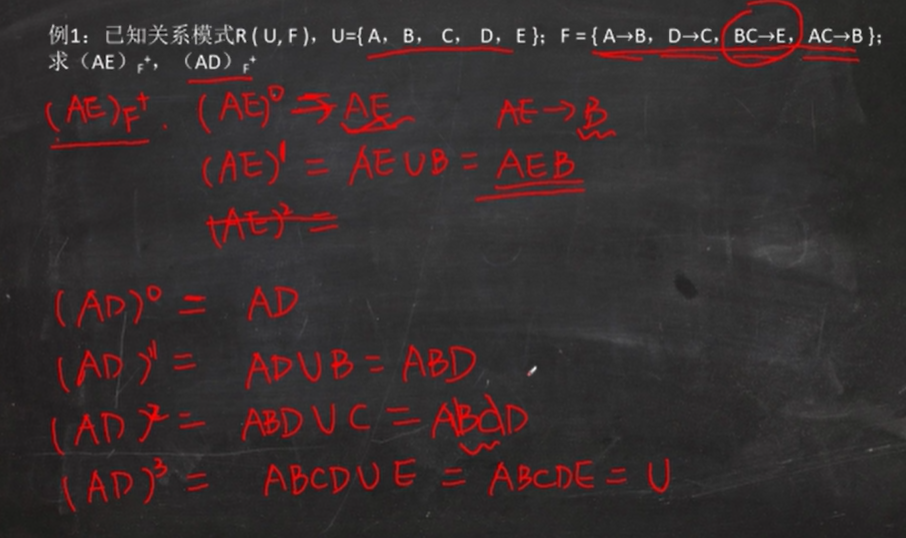 例1：已知关系模式R（U,F），U={A，B，C，D，E}；F={A→B，D→C，BC→E，AC→B}；
求（AE）F⁺，（AD）F⁺
(AE)F⁺. (AE)⁰ → AE AE→B
(AE)¹ = AE∪B = AEB
(AE)² =
(AD)⁰ = AD
(AD)¹ = AD∪B = ABD
(AD)² = ABD∪C = ABCD
(AD)³ = ABCD∪E = ABCDE = U